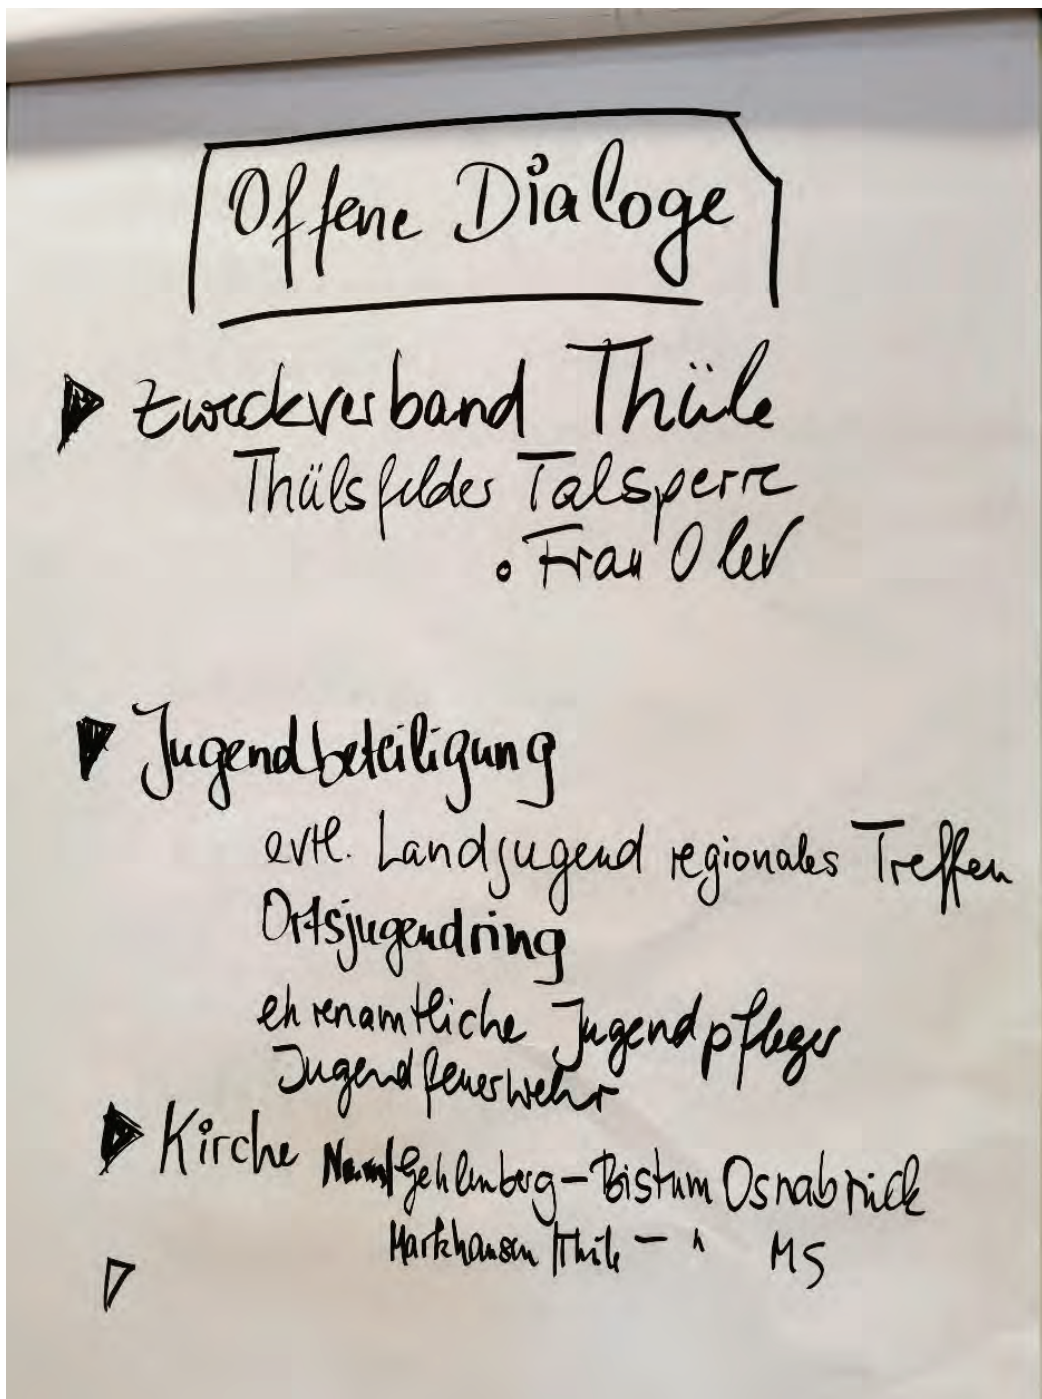 Offene Dialoge
Zweckverband Thüle
Thülsfelder Talsperre
• Frau
Jugendbeteiligung
evtl. Landjugend regionales Treffen
Ortsjugendring
ehrenamtliche Jugendpfleger
Jugendfeuerwehr
Kirche /Gehlenberg – Bistum Osnabrück
Markhausen /Thüle – " MS